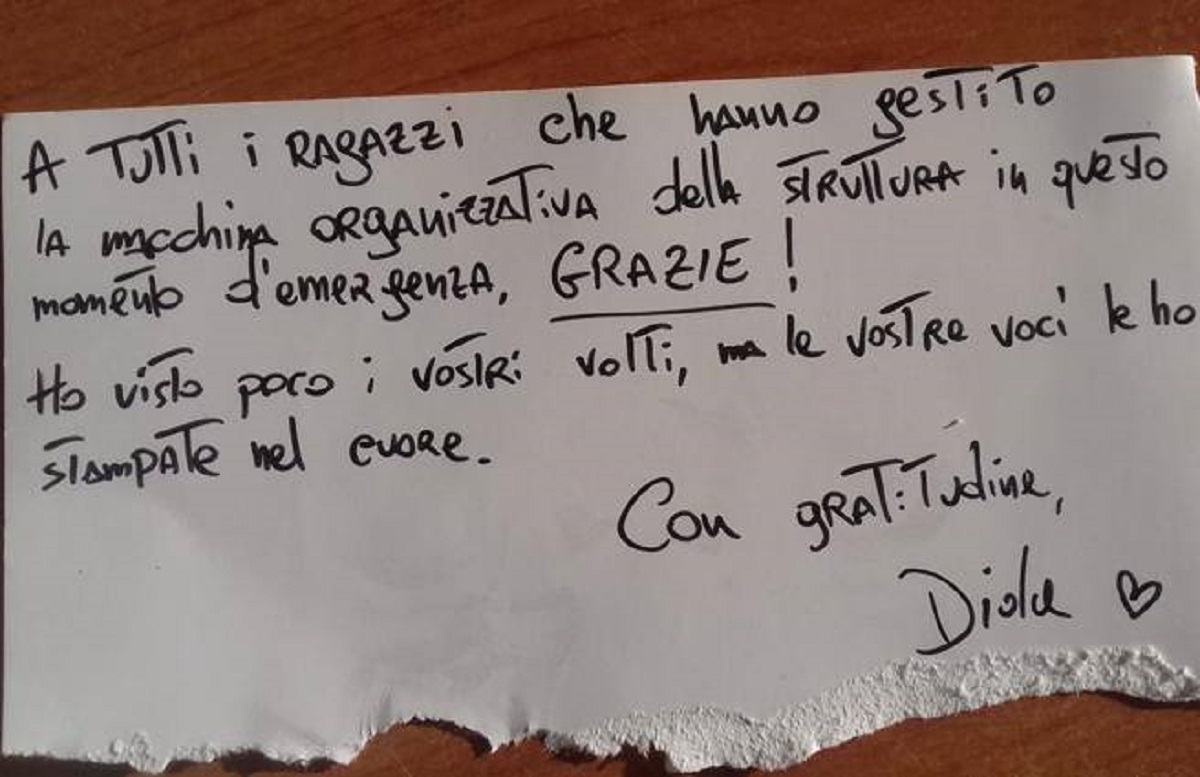 A TUTTi i RAGAZZi che hanno gestito
lA macchina ORGANizzATiVA della STRUTTURA in questo
momento d'emergenza, GRAZIE!
Ho visto poco i vostri volti, ma le vostre voci le ho
stampate nel cuore.
Con gratitudine,
♡